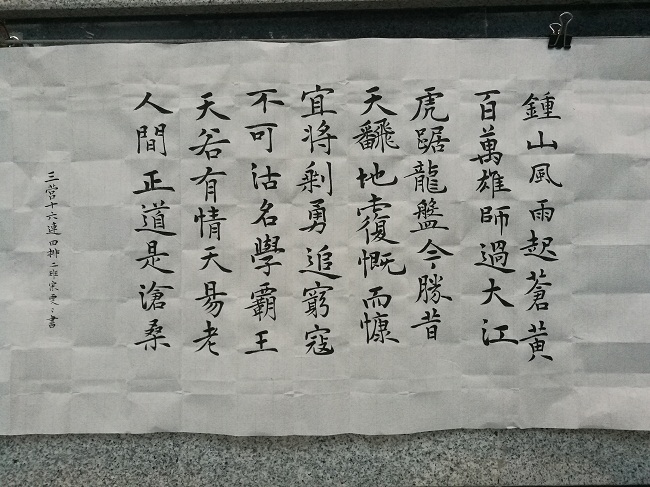 鍾山風雨起蒼黃
百萬雄師過大江
虎踞龍盤今勝昔
天飜地覆慨而慷
宜將剩勇追窮寇
不可沽名學霸王
天若有情天易老
人間正道是滄桑
三营十六連四排二班宋書